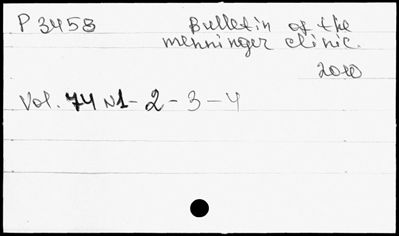 P 3458 Bulletin of the
menninger clinic.
2010
Vol. 74 N1-2-3-4